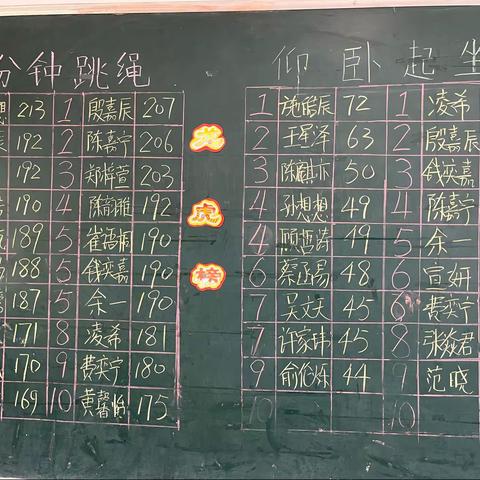 分钟跳绳
仰卧起坐
213 1 殷嘉辰 207
192 2 陈嘉宁 206
192 3 郑梓萱 203
190 4 192
189 5 190
188 5 钱奕嘉 190
187 5 余一 190
171 8 凌希 181
170 9 费奕宁 180
169 10 黄馨怡 175
龙
虎
榜
1 72 1 凌希
2 王星泽 63 2 殷嘉辰
3 50 3 钱奕嘉
4 孙想想 49 4 陈嘉宁
4 顾哲涛 49 5 余一
6 48 6 宣妍
7 吴文天 45 6 费奕宁
7 许家玮 45 8 张焱君
9 44 9 范晓
10 10